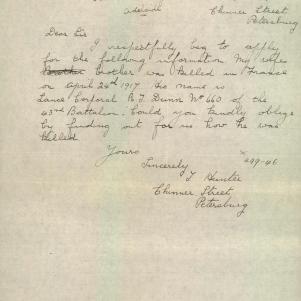 Adelaide
Chinner Street
Petersburg
Dear Sir
I respectfully beg to apply
for the following information My wifes
Brother brother was killed in France
on April 24th 1917 His name is
Lance Corporal R. J. Dunn No 660 of the
43rd Battalion. Could you kindly oblige
by finding out for us how he was
killed
Yours
Sincerely
J Hunter
Chinner Street
Petersburg